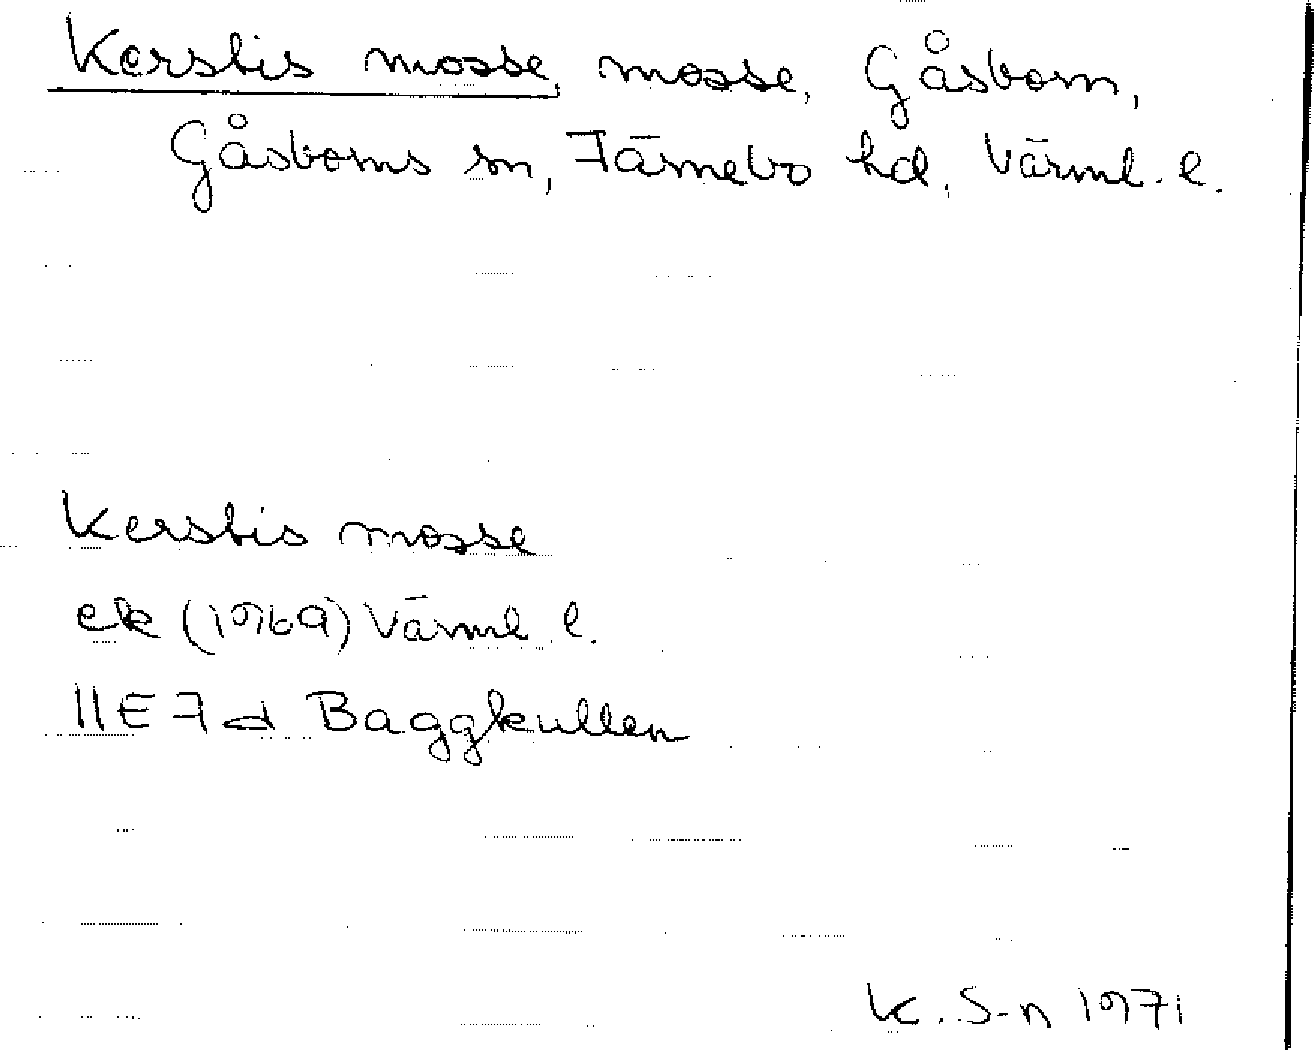 Kerstis mosse, mosse, Gåsborn,
Gåsborns sn, Färnebo hd, Värml. l.
Kerstis mosse
ek (1969) Värml. l.
11E 7d Baggkullen
K. S-n 1971